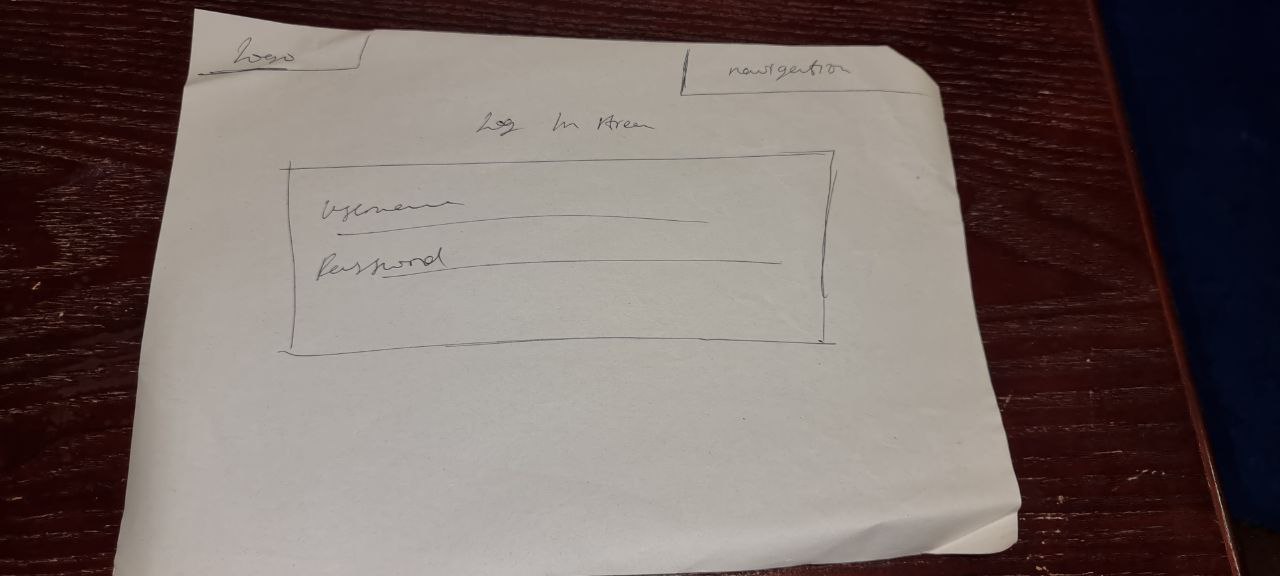 Logo
navigation
Log In Area
Username
Password